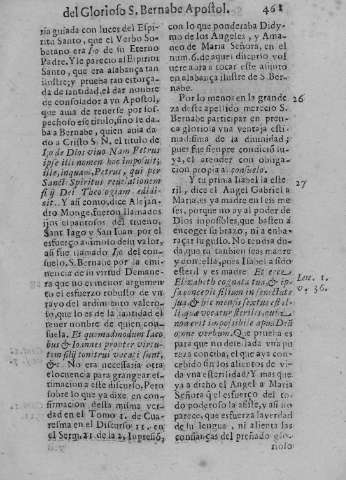 del Glorioso S. Bernabe Apostol. 461
ria guiada con luces del Espi-
ritu Santo, que el Verbo So-
berano era Io de su Eterno
Padre. Y le pareciò al Espiritu
Santo, que era alabança tan
ilustre; y prueba tan esforça-
da de santidad, el dar nombre
de consolador a vn Apostol,
que aun de tenerse por sos-
pechoso ese titulo, sino le da-
ba a Bernabe, quien auia da-
do a Cristo S. N. el titulo de
Io de Dios viua. Nam Petrus
ipse illi nomen hoc imposuit,
ille, inquam, Petrus, qui per
Sancti Spiritus reuelationem
fi ij Dei Tuco ogiam edidi-
sit. Y asi como, dice Alejan-
dro Monge, fueron llamados
ijos espantosos del trueno,
Sant Iago y San Iuan, por el
esfuerço animoso de su valor,
asi fue llamado Ijo del con-
suelo, S. Bernabe por la emi-
nencia de su virtud. Demanera
que no es menor argumen-
to el esfuerço robusto de vn
rayo del ardimiento valero-
so, que lo es de la santidad el
tener nombre de quien con-
suela. Et quemadmodum Iaco-
bus & Ioannes propter virtu-
tem filij tonitrui vocati sunt,
&c. No era necesaria otra
eloquencia para grangear es-
timacion a este discurso. Pero
sobre lo que ya dixe en con-
firmacion desta misma ver-
dad en el Tomo 1. de Cua-
resma en el Discurso 11. en
el Serm. 21 de la 2, Impresió,
con lo que ponderaba Didy-
mo de los Angeles, y Ama-
neo de Maria Señora, en el
num. 6. de aquel discurso, vol-
uere aora a tocar este asunto
en alabança ilustre de S. Ber-
nabe.
Por lo menos en la grande 26
za deste apellido mereciò S.
Bernabe participar en pren-
ca gloriosa vna ventaja esti-
masissima de la diuinidad;
pues fue siempre condicion su-
ya, el atender con obliga-
cion propia al consuelo.
Y tu prima Isabel la este- 27
ril, dice el Angel Gabriel a
Maria, es ya madre en seis me-
ses, porque no ay al poder de
Dios imposibles, que basten a
encoger su brazo, ni a emba-
raçar su gusto. No tengas du-
da, que tu tambien seas madre
y donzella, pues Isabel a sido
esteril y es madre. Et ecce
Elizabeth cognata tua, & ip- Luc. 1.
sa concepit filium in senectute v. 36.
sua, & hic mensis sextus est il-
li quae vocatur sterilis, quia
non erit impossibile apud Deū
omne verbum. Que prueba es
para que no dete llada vna pu-
reza conciba, el que aya con-
cebido en los alientos de vi-
da vna esterilidad? Y mas que
ya a dicho el Angel a Maria
Señora q̃ el esfuerço del to-
do poderoso la asiste, y asi no
parece, que esfuerça la verdad
de su lengua, ni alienta las
confianças del preñado glo-
rioso